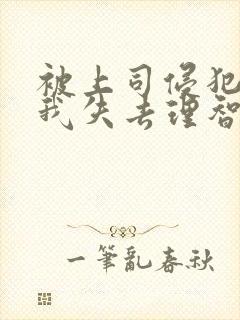 被上司侵犯
我失去理智
一筆亂春秋